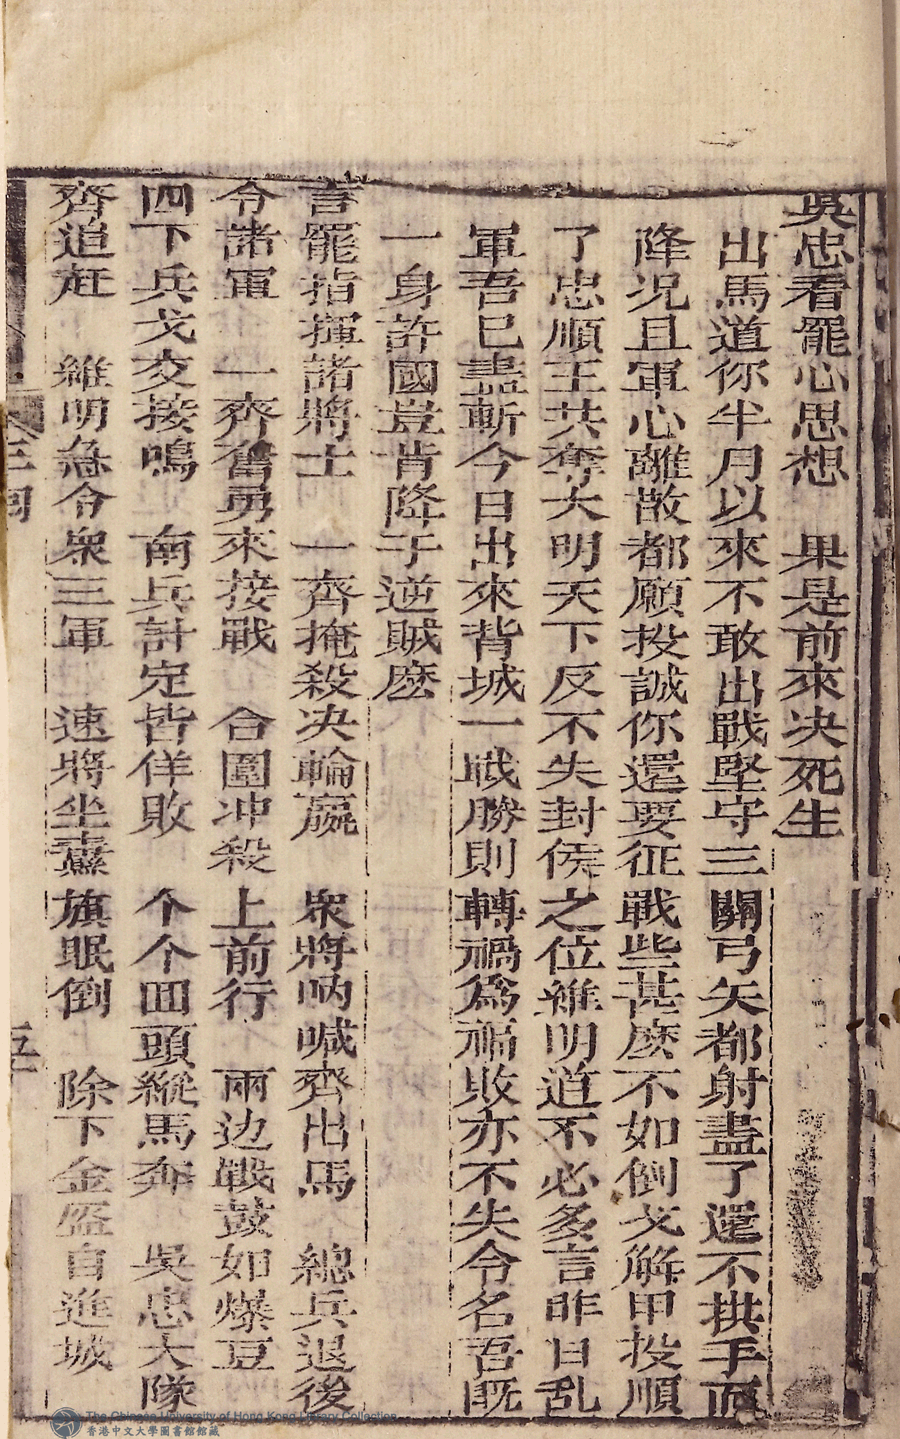 吳忠看罷心思想　果是前來决死生
出馬道你半月以來不敢出戰堅守三關弓矢都射盡了還不拱手而
降况且軍心離散都願投誠你還要征戰些甚麽不如倒戈解甲投順
了忠順王共奪大明天下反不失封侯之位維明道不必多言昨日乱
軍吾已盡斬今日出來背城一戦勝則轉禍爲福敗亦不失令名吾既
一身許國豈肯降于逆賊麽
言罷指揮諸將士　一齊掩殺决輸嬴　衆將吶喊齊出馬　總兵退後
令諸軍　一齊奮勇來接戰　合圍冲殺上前行　兩边戰鼓如爆豆
四下兵戈交接鳴　南兵計定皆佯敗　个个囬頭縱馬奔　吳忠大隊
齊追赶　維明急令衆三軍　速將坐纛旗眠倒　除下金盔自進城
卷三回
五
The Chinese University of Hong Kong Library Collection
香港中文大學圖書館館藏